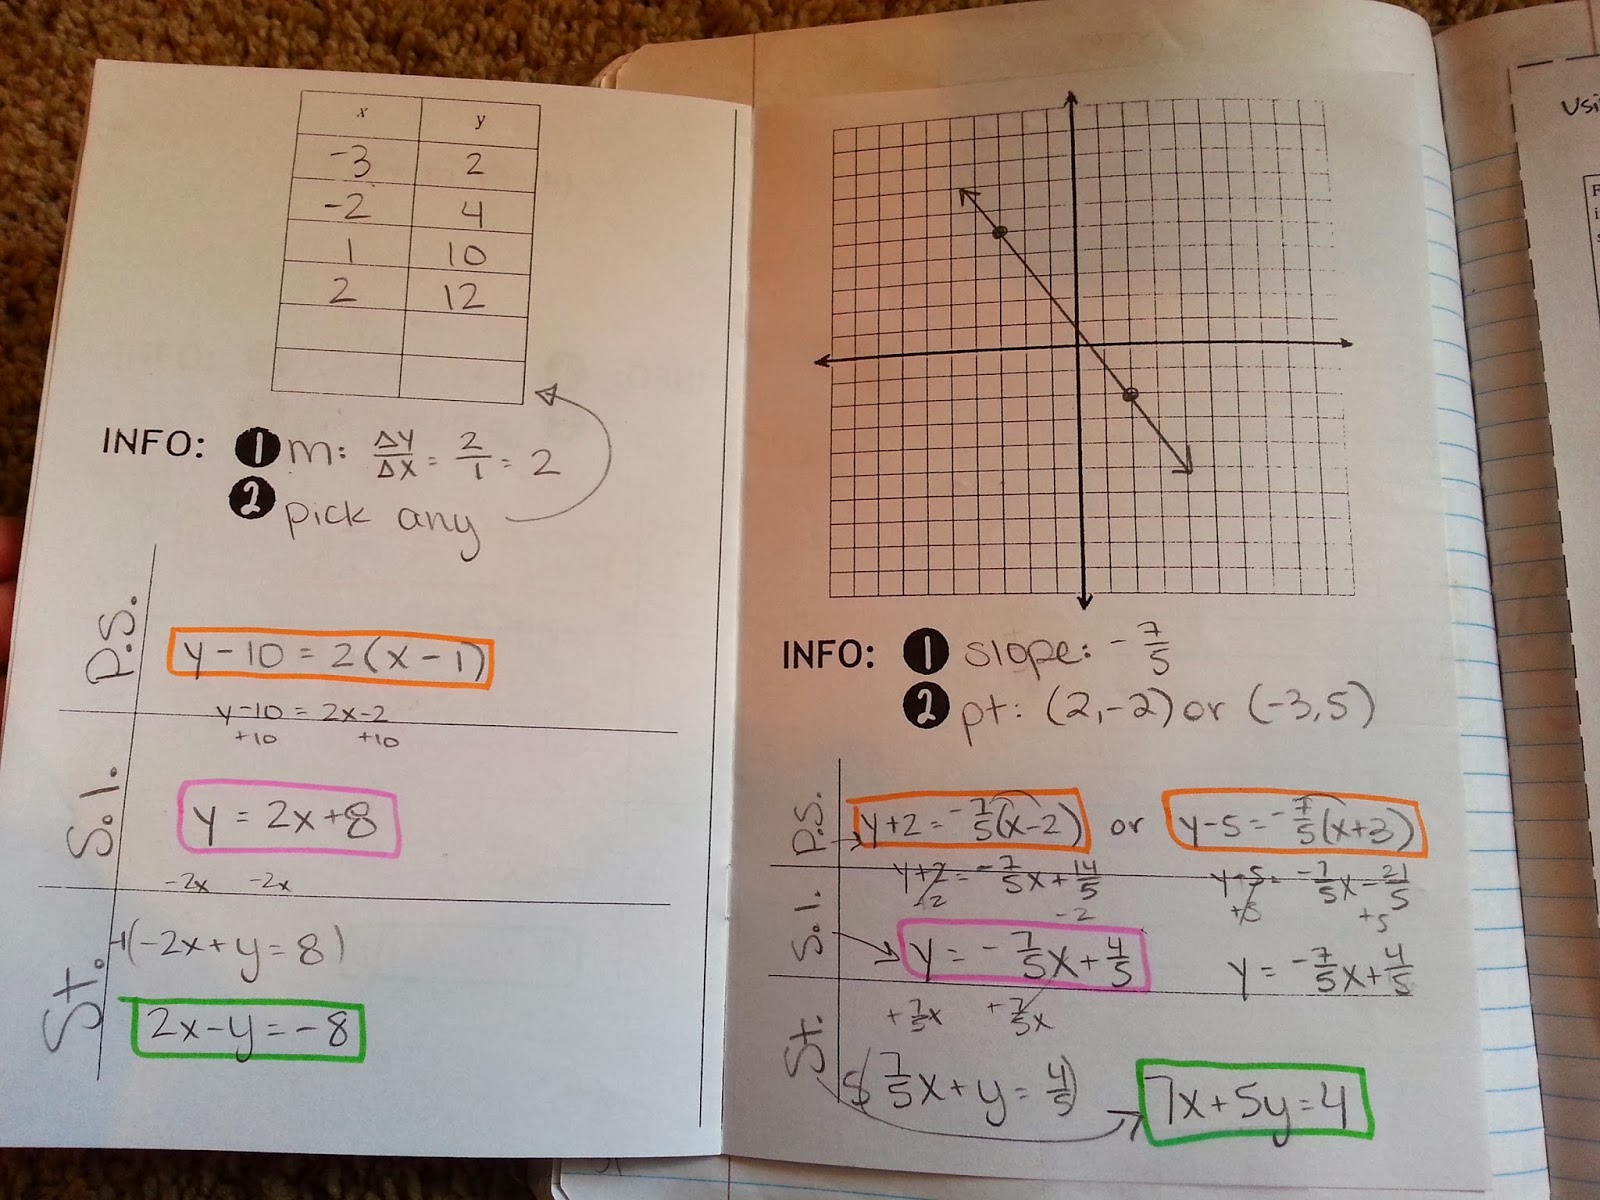 x y
-3 2
-2 4
1 10
2 12
INFO: 1 m: ΔY/ΔX = 2/1 = 2
2 pick any
P.S.
y-10 = 2(x-1)
y-10 = 2x-2
+10 +10
S.I.
y = 2x+8
-2x -2x
St.
-1(-2x+y=8)
2x-y=-8
INFO: 1 slope: -7/5
2 pt: (2,-2) or (-3,5)
P.S.
y+2=-7/5(x-2) or y-5=-7/5(x+3)
y+2=-7/5x+14/5 y-5=-7/5x-21/5
-2 -2 +5 +5
S.I.
y=-7/5x+4/5 y=-7/5x+4/5
+7/5x +7/5x
St.
5(7/5x+y=4/5) 7x+5y=4
Usi